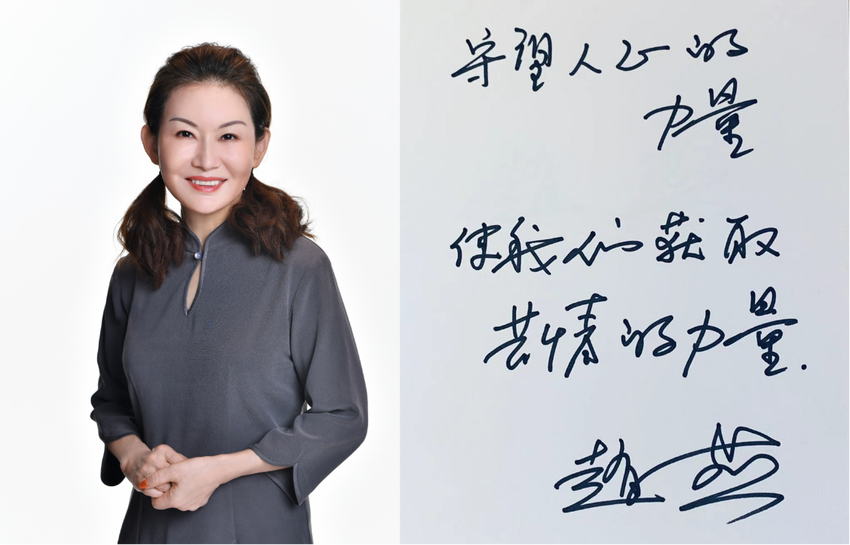 守望人心的
力量
使我们获取
共情的力量.
趙燕